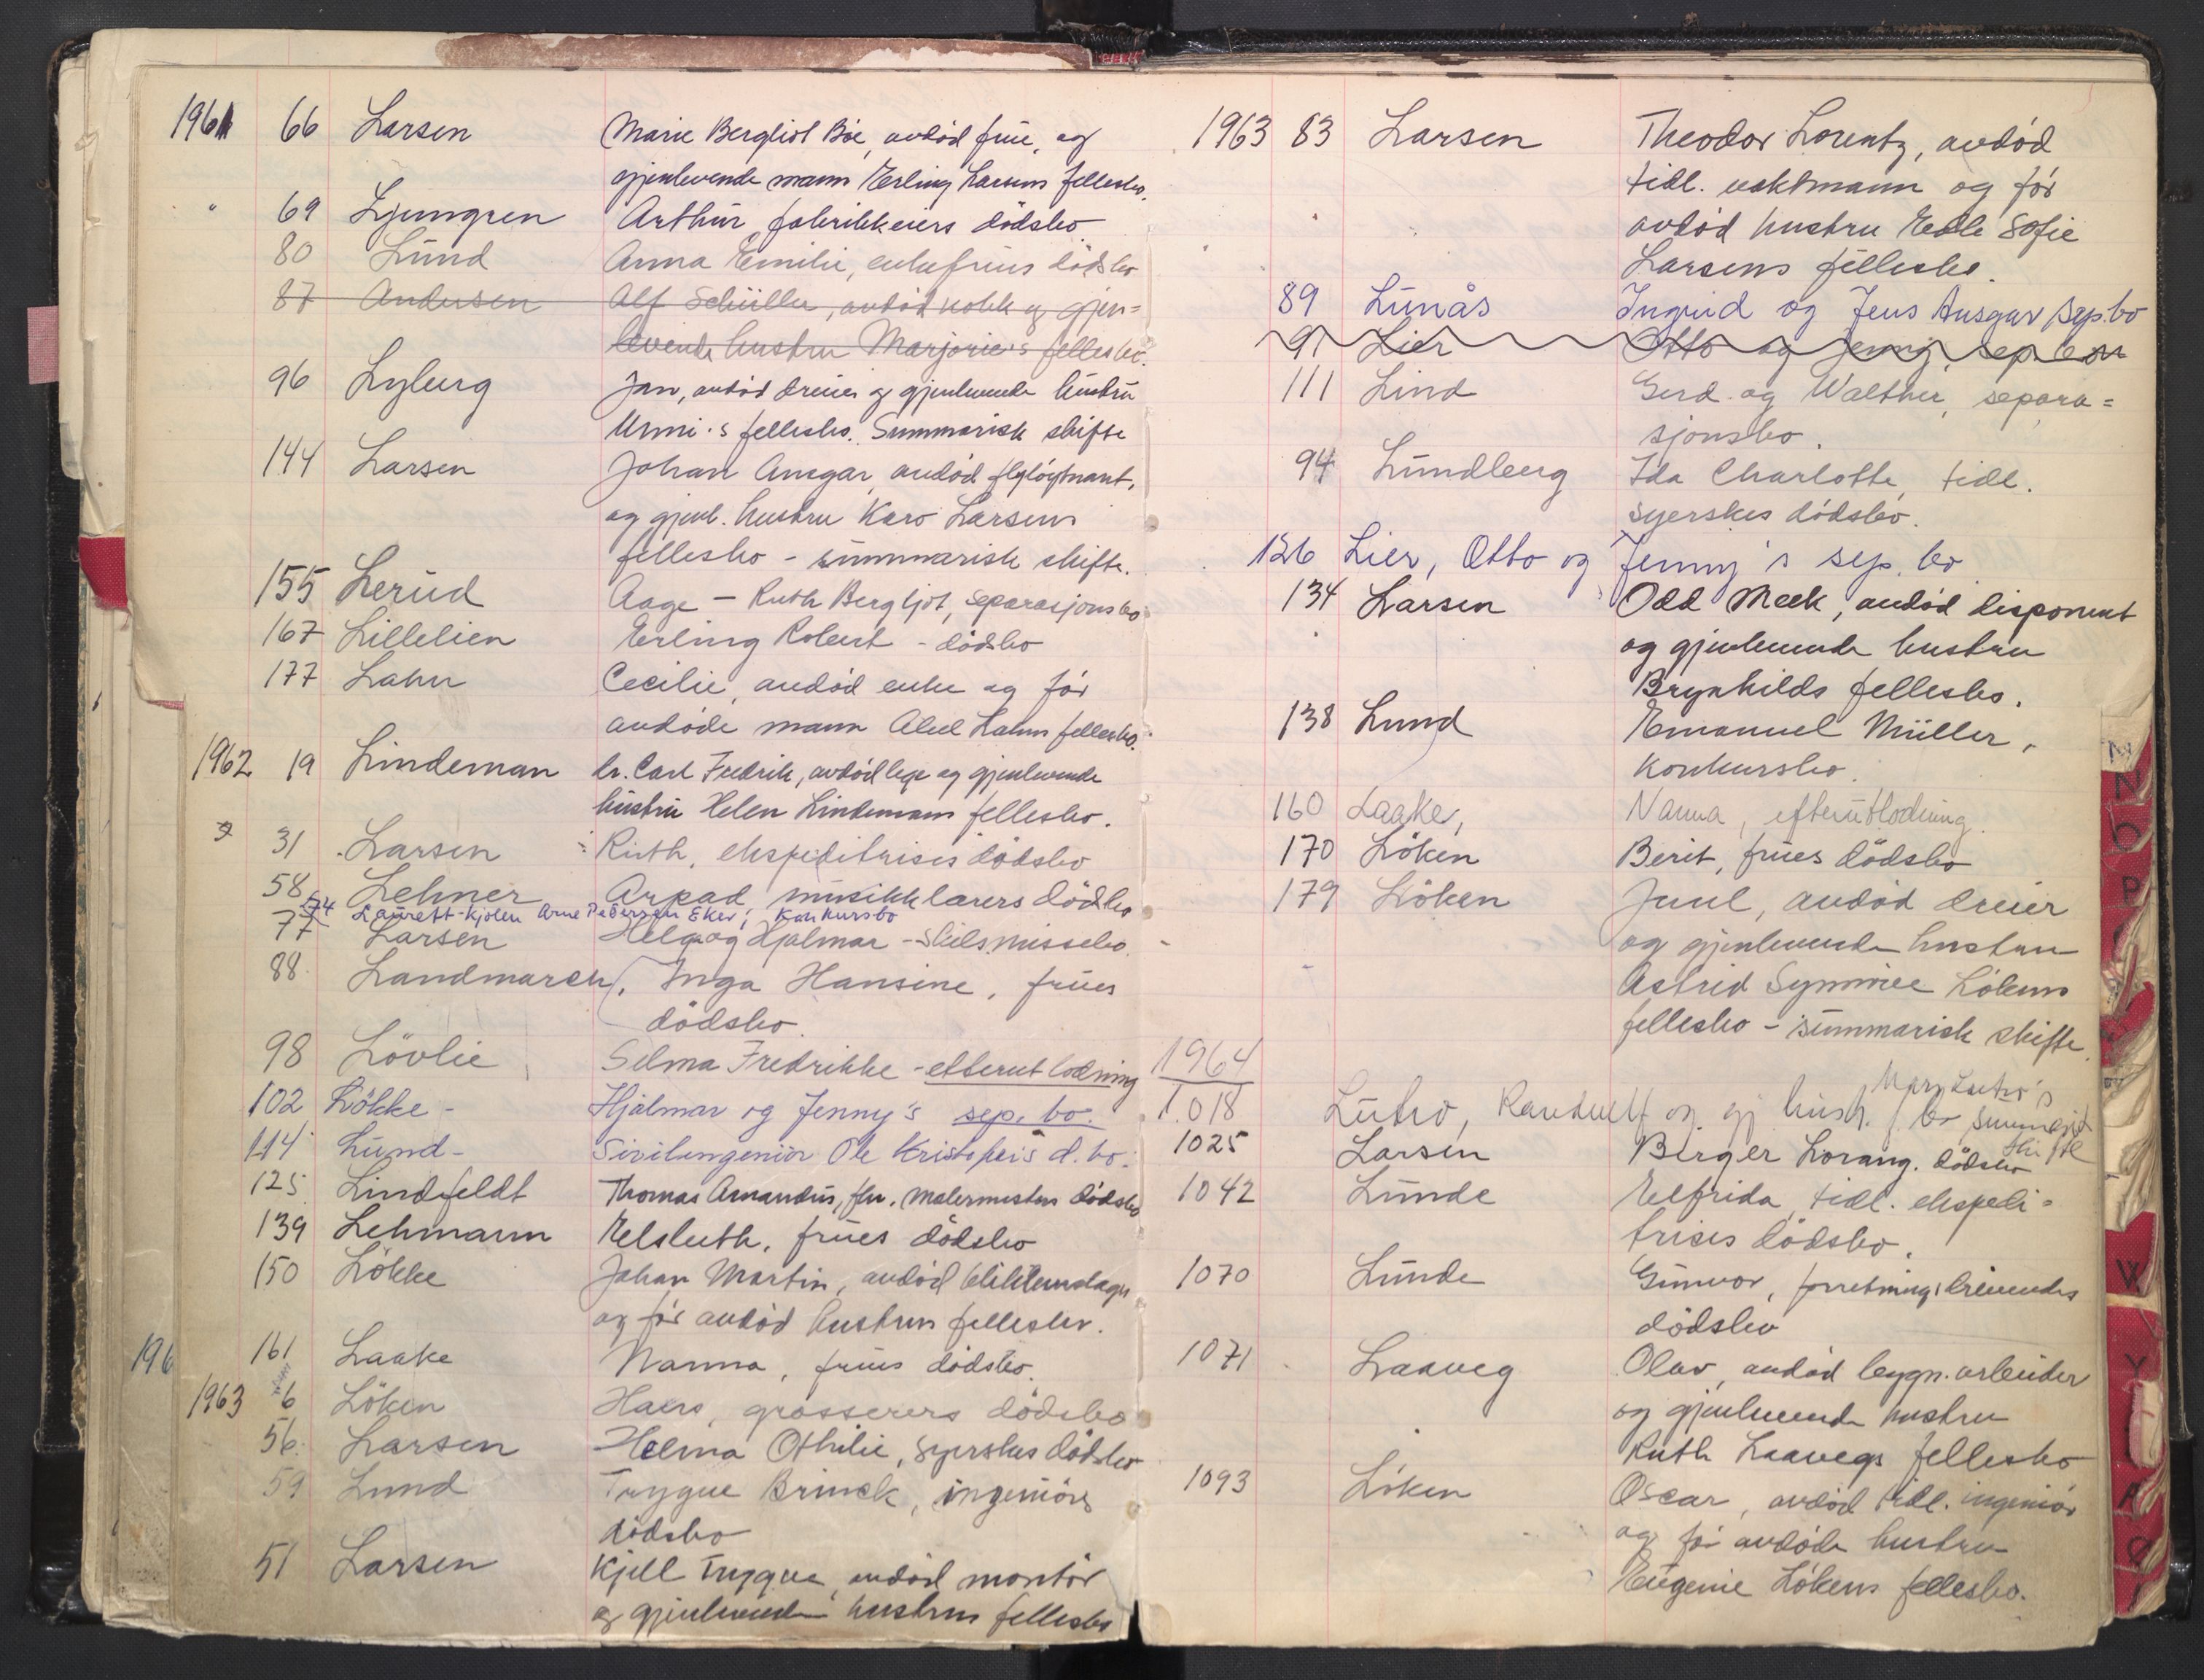 1961 66 Larsen Marie Bergliot Bøe, avdød frue, og
gjenlevende mann Erling Larsens fellesbo.
" 69 Ljungren Arthur, fabrikkeiers dödsbo
80 Lund Anna Emilie, enkefrues dödsbo
87 Andersen Alf Schüller, avdöd kokk og gjen=
levende hustru Marjorie's fellesbo.
96 Lyberg Jan, avdöd dreier og gjenlevende hustru
Unni's fellesbo. Summarisk skifte
144 Larsen Johan Ansgar, avdöd flyløytnant,
og gjenl. hustru Karo Larsens
fellesbo - summarisk skifte.
155 Lerud Aage - Ruth Bergljot, separasjonsbo
167 Lillelien Erling Robert - dödsbo
177 Lahn Cecilie, avdöd enke og för
avdöde mann Abel Lahns fellesbo.
1962 19 Lindeman dr. Carl Fredrik, avdöd lege og gjenlevende
hustru Helen Lindemans fellesbo.
31 Larsen Ruth, ekspeditrises dödsbo
58 Lehner Arpad musikklærers dödsbo
174 Laurett-kjolen Arne Pedersen Eker, Konkursbo
77 Larsen Helga og Hjalmar - skilsmissebo
88 Landmarch, Inga Hansine, frues
dödsbo.
98 Lövlie, Selma Fredrikke - etterutlodning
102 Lökke - Hjalmar og Jenny's sep. bo.
114 Lund - Sivilingeniör Ole Kristofers d. bo.
125 Lindfeldt Thomas Amandus, fhv. malermesters dödsbo
139 Lehmann Elsbeth, frues dödsbo
150 Lökke Johan Martin, avdöd blikkenslager
og för avdöd hustrus fellesbo.
196 161 Laake Nanna, frues dödsbo.
1963 6 Löken Hans, grosserers dödsbo
56. Larsen Helma Othilie, syerskes dödsbo
59 Lund Trygve Brinck, ingeniörs
dödsbo
51 Larsen Kjell Trygve, avdöd montör
og gjenlevende hustrus fellesbo
1963 83 Larsen Theodor Lorentz, avdöd
tidl. vaktmann og för
avdöd hustru Edle Sofie
Larsens fellesbo.
89 Lunås Ingrid og Jens Ansgar sep.bo
91 Lier Otto og Jenny, sep. bo
111 Lind Gerd og Walther, separa=
sjonsbo.
94 Lundberg Ida Charlotte, tidl.
syerskes dödsbo.
126 Lier, Otto og Jenny's sep. bo
134 Larsen Odd Meek, avdöd disponent
og gjenlevende hustru
Brynhilds fellesbo.
138 Lund Emanuel Müller,
konkursbo.
160 Laake, Nanna, efterutlodning.
170 Löken Berit, frues dödsbo
179 Löken Juul, avdöd dreier
og gjenlevende hustru
Astrid Synnöve Lökens
fellesbo - summarisk skifte.
1964
1.018 Lutro, Randulf og gj hust. Mary Lutro's
f. bo summarisk
skifte
1025 Larsen Birger Lorang. dödsbo
1042 Lunde Elfrida, tidl. ekspedi=
trises dödsbo.
1070 Lunde Gunvor, forretningsdrivendes
dödsbo
1071 Laaveg Olav, avdöd bygn. arbeider
og gjenlevende hustru
Ruth Laavegs fellesbo
1093 Löken Oscar, avdöd tidl. ingeniör
og för avdöde hustru
Eugenie Lökens fellesbo.
N
N
O
P
W
Y
Ø